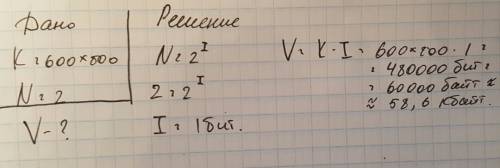 Дано
K = 600×800
N = 2
V - ?
Решение
N = 2ᴵ
2 = 2ᴵ
I = 1 бит.
V = K · I = 600×800 · 1 =
= 480000 бит =
= 60000 байт ≈
≈ 58,6 Кбайт.